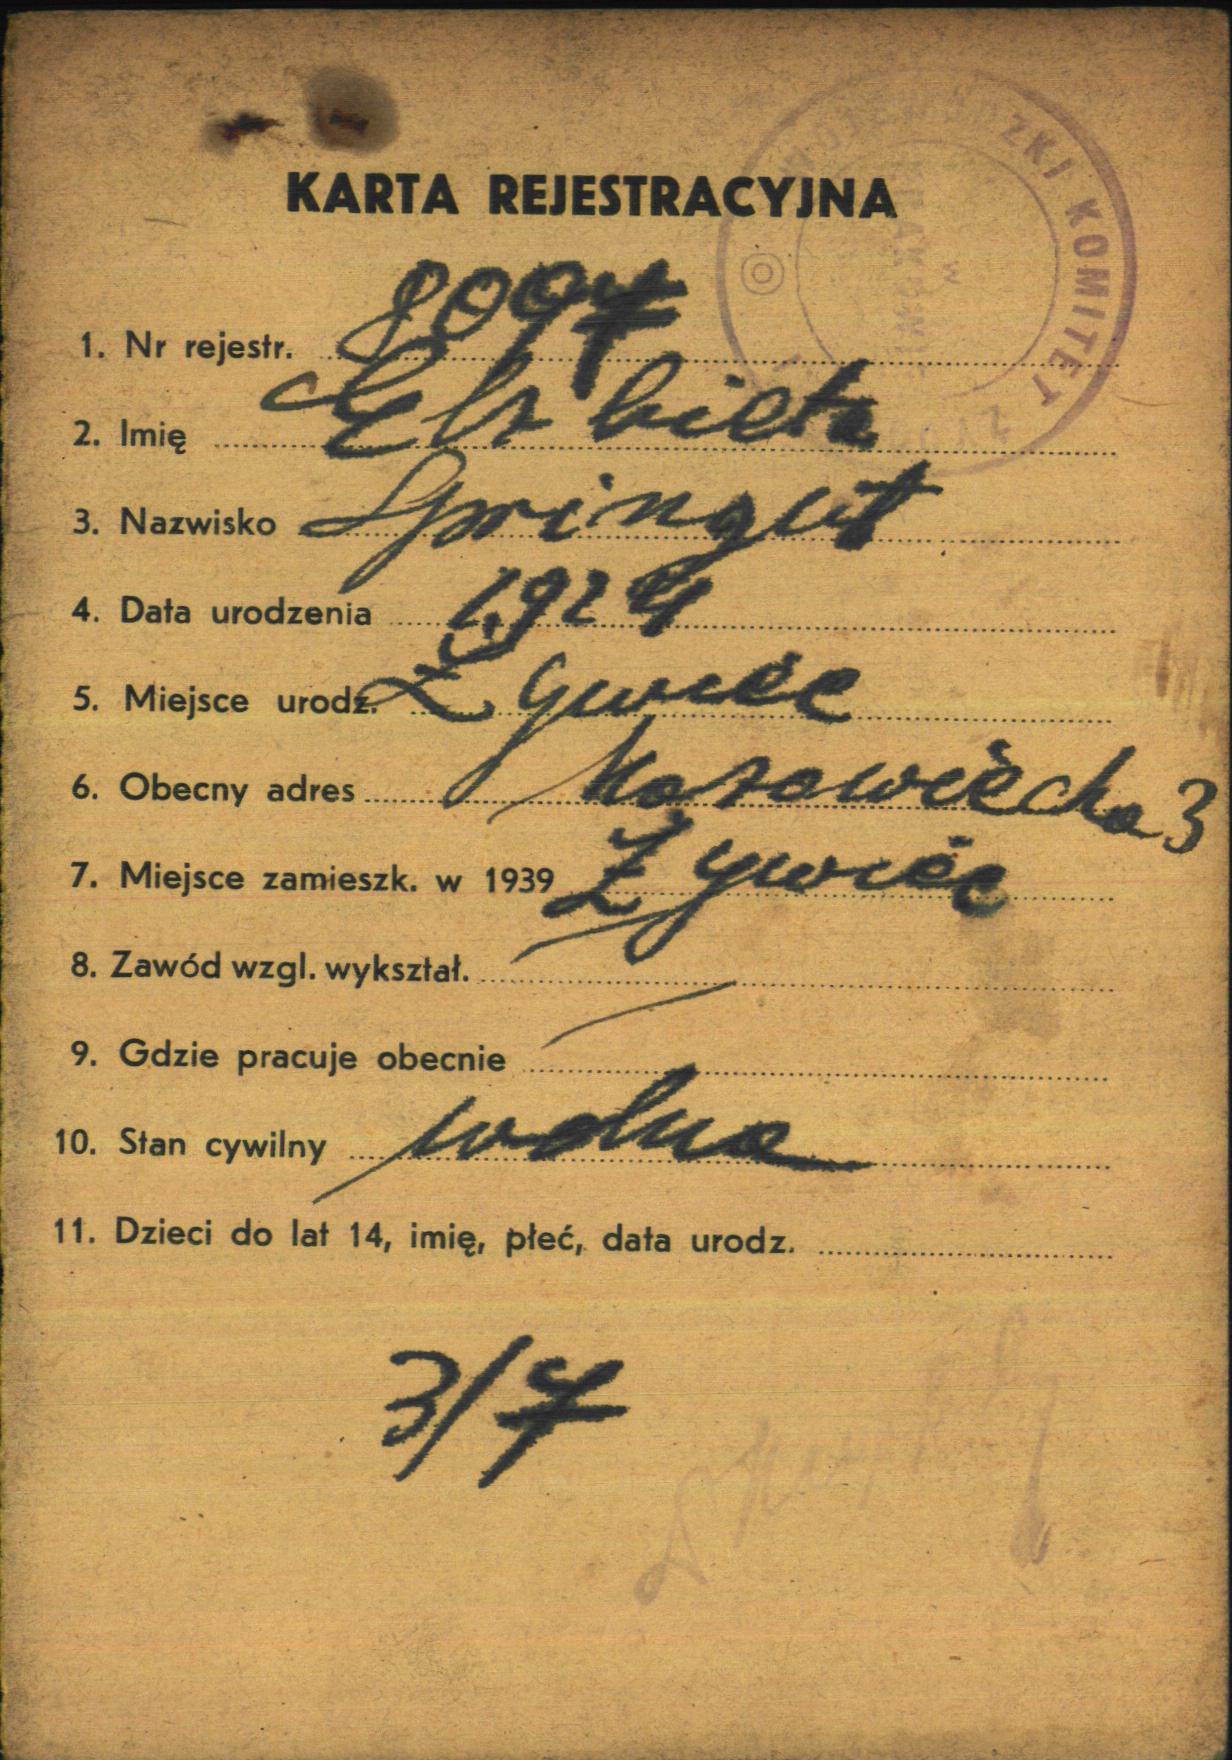 KARTA REJESTRACYJNA
1. Nr rejestr. 8097
2. Imię Elżbieta
3. Nazwisko Springut
4. Data urodzenia 1924
5. Miejsce urodz. Żywiec
6. Obecny adres Mazowiecka 3
7. Miejsce zamieszk. w 1939 Żywiec
8. Zawód wzgl. wykształ.
9. Gdzie pracuje obecnie
10. Stan cywilny wolna
11. Dzieci do lat 14, imię, płeć, data urodz.
3/7
KOMITET
w